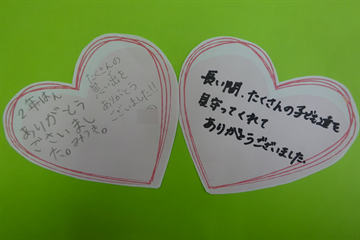 2年かん
ありがとう
ございまし
た。
たくさんの
思い出を
ありがとう
ございました!!
長い間、たくさんの子ども達を
見守ってくれて
ありがとうございました。